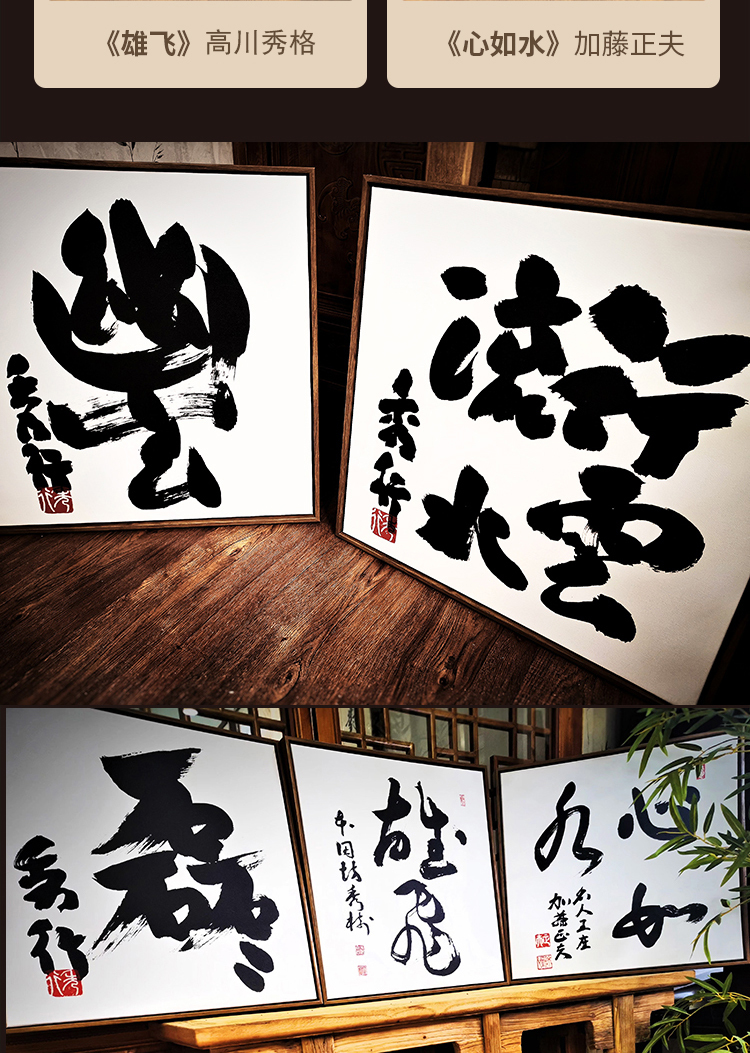 《雄飞》高川秀格
《心如水》加藤正夫
幽玄
秀行
行雲
流水
秀行
磊々
秀行
雄飛
本因坊秀格
心如
水
名人王座
加藤正夫